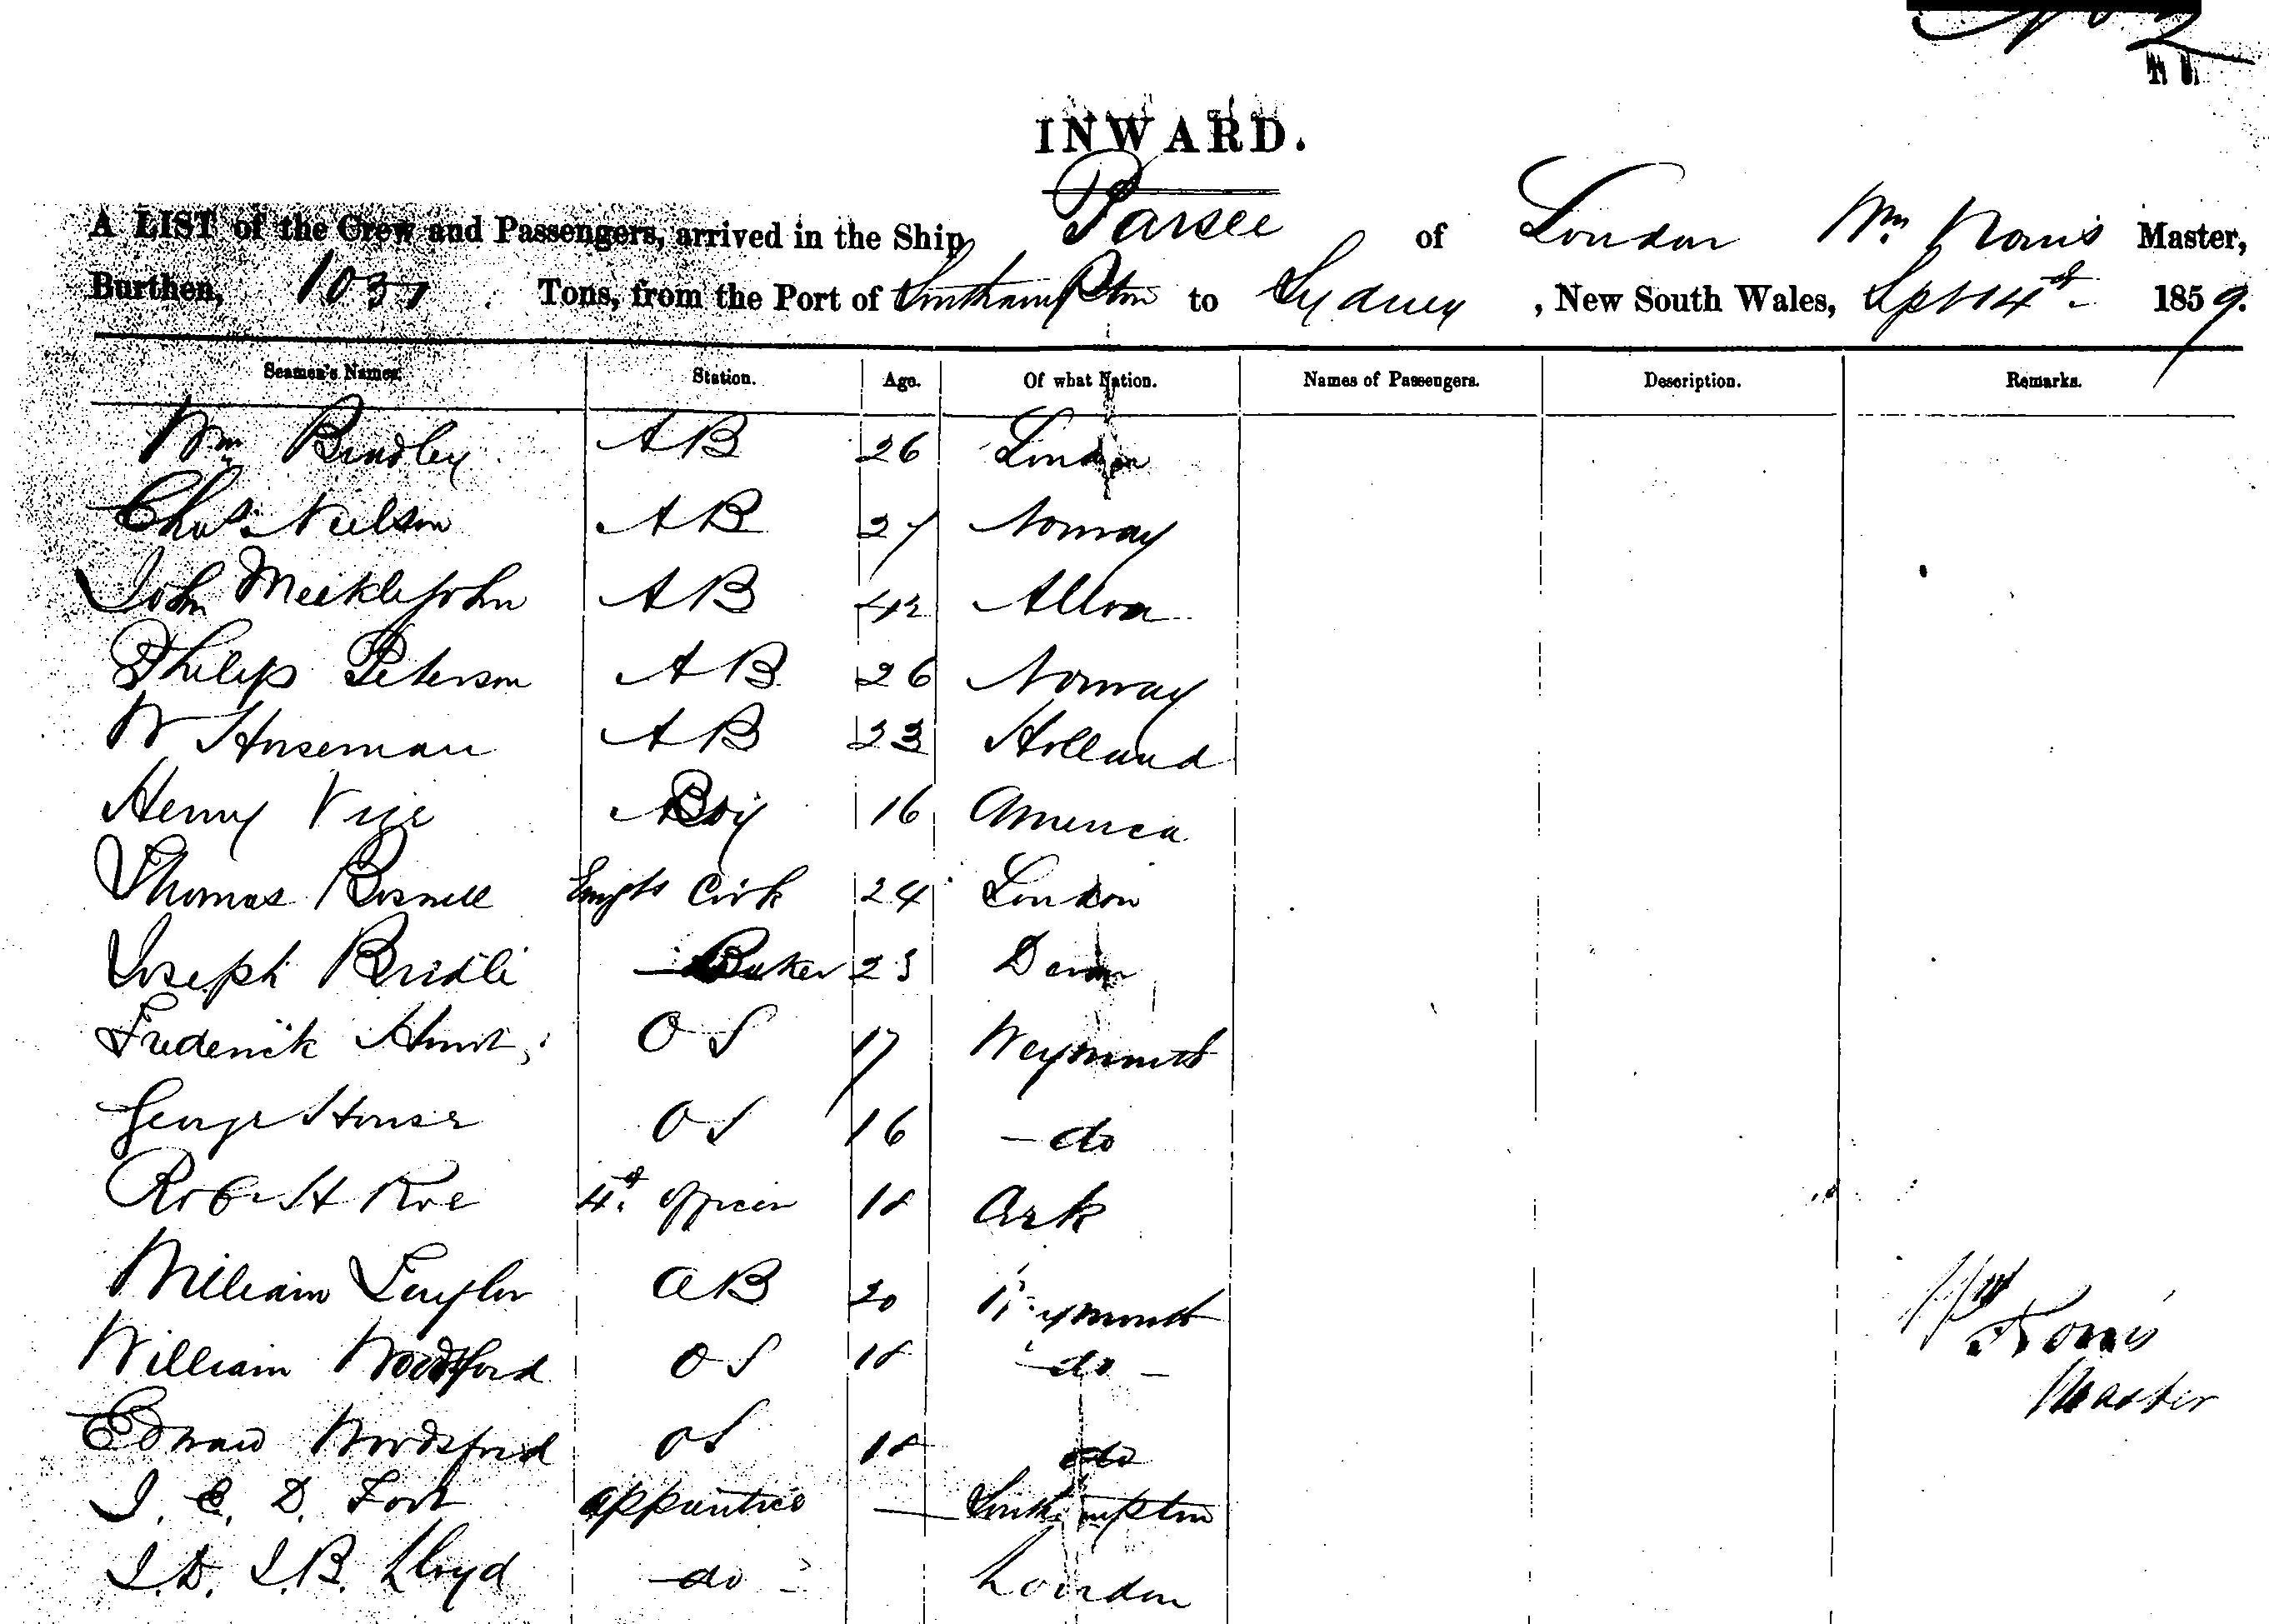 No 2
INWARD.
A LIST of the Crew and Passengers, arrived in the Ship Parsee of London Wm Norris Master,
Burthen, 1037 Tons, from the Port of Southampton to Sydney, New South Wales, Sept 14th 1859.
Seamen's Names. Station. Age. Of what Nation. Names of Passengers. Description. Remarks.
Wm Bradley AB 26 London
Chas. Neilson AB 27 Norway
John Meeklejohn AB 42 Alloa
Philip Peterson AB 26 Norway
W Horseman AB 23 Holland
Henry AB Boy 16 America
Thomas Cook 24 London
Joseph Baker 23 Devon
Frederick Hunt OS 17 Weymouth
George House OS 16 do
Robert Roe 4th Officer 18
William Taylor AB 20 Weymouth
William Woodsford OS 18 do
Edward Woodsford OS 18 do
J. C. D. apprentice — Southampton
J. D. J. B. Lloyd do London
Wm Norris
Master